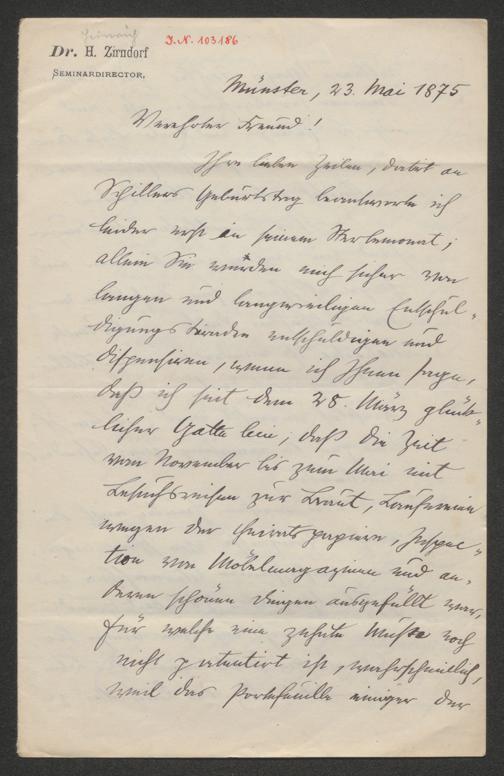 Heinrich
J. N. 103186
Dr. H. Zirndorf
SEMINARDIRECTOR.
Münster, 23. Mai 1875
Verehrter Freund!
Ihre lieben Zeilen, datirt an
Schillers Geburtstag beantworte ich
leider erst in seinem Sterbemonat;
allein Sie würden mich sicher von
langen und langweiligen Entschul-
digungsgründen entschuldigen und
dispensiren, wenn ich Ihnen sage,
daß ich seit dem 28. März glück-
licher Gatte bin, daß die Zeit
vom November bis zum Mai mit
Besuchsreisen zur Braut, Laufereien
wegen der Heiratspapiere, Inspec-
tion von Möbelmagazinen und an-
deren schönen Dingen ausgefüllt war,
für welche eine zehnte Muse noch
nicht patentirt ist, wahrscheinlich,
weil das Portefeuille einiger der